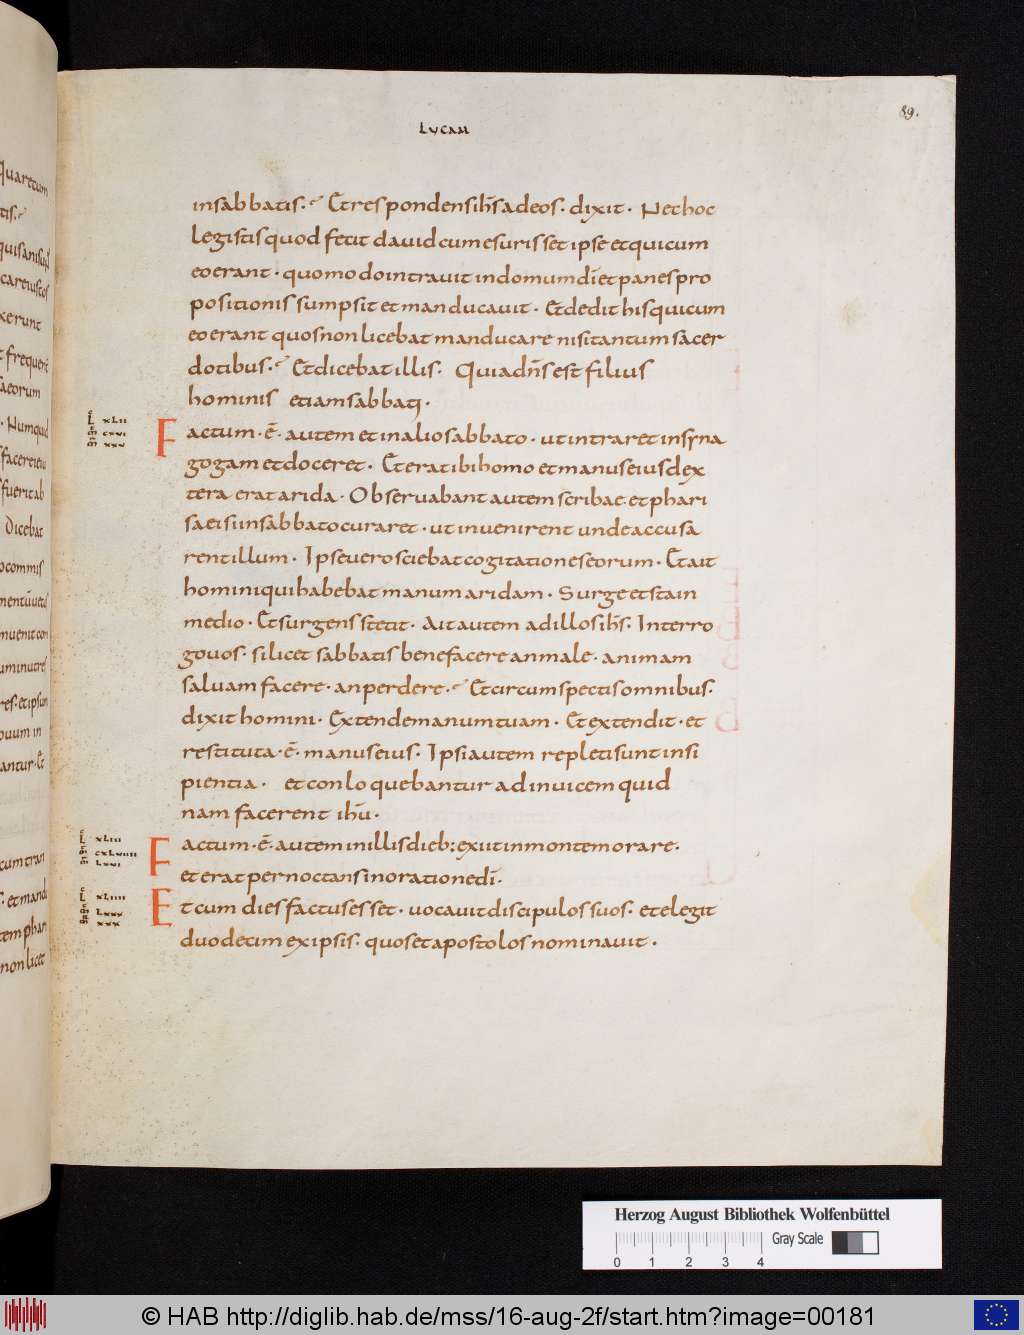 LVCAM
89.
insabbatis. Et respondens ih̄s ad eos. dixit. Nec hoc
legistis quod fecit david cum esurisset ipse et qui cum
eo erant. quomodo intravit in domum dī et panes pro
positionis sumpsit et manducavit. Et dedit his qui cum
eo erant quos non licebat manducare nisi tantum sacer
dotibus. Et dicebat illis. Quia dn̄s est filius
hominis etiam sabbati.
Factum. ē. autem et in alio sabbato. ut intraret in syna
gogam et doceret. Et erat ibi homo et manus eius dex
tera erat arida. Observabant autem scribae et phari
saei si in sabbato curaret. ut invenirent unde accusa
rent illum. Ipse vero sciebat cogitationes eorum. Et ait
homini qui habebat manum aridam. Surge et sta in
medio. Et surgens stetit. Ait autem ad illos ih̄s. Interro
go vos. si licet sabbatis bene facere an male. animam
salvam facere. an perdere. Et circumspectis omnibus.
dixit homini. Extende manum tuam. Et extendit. et
restituta. ē. manus eius. Ipsi autem repleti sunt insi
pientia. et conloquebantur ad invicem quid
nam facerent ih̄u.
Factum. ē. autem in illis dieb: exiit in montem orare.
et erat pernoctans in oratione dī.
Et cum dies factus esset. vocavit discipulos suos. et elegit
duodecim ex ipsis. quos et apostolos nominavit.
Herzog August Bibliothek Wolfenbüttel
Gray Scale
0 1 2 3 4
© HAB http://diglib.hab.de/mss/16-aug-2f/start.htm?image=00181